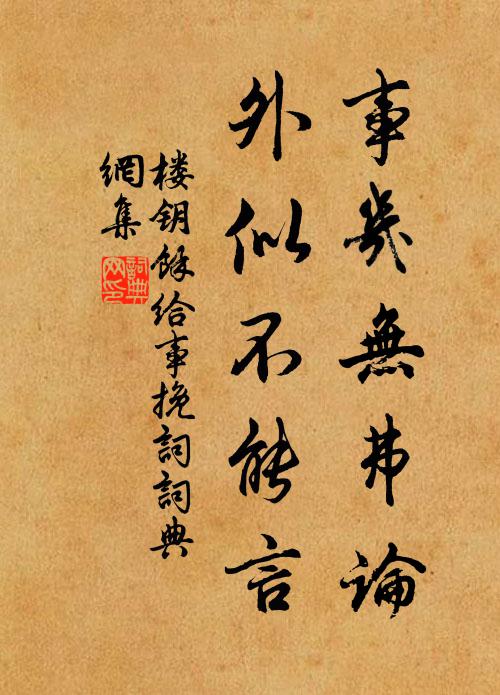 事幾無弗論
外似不能言
楼钥餘給事挽詞詞典
網集
詞典
网印